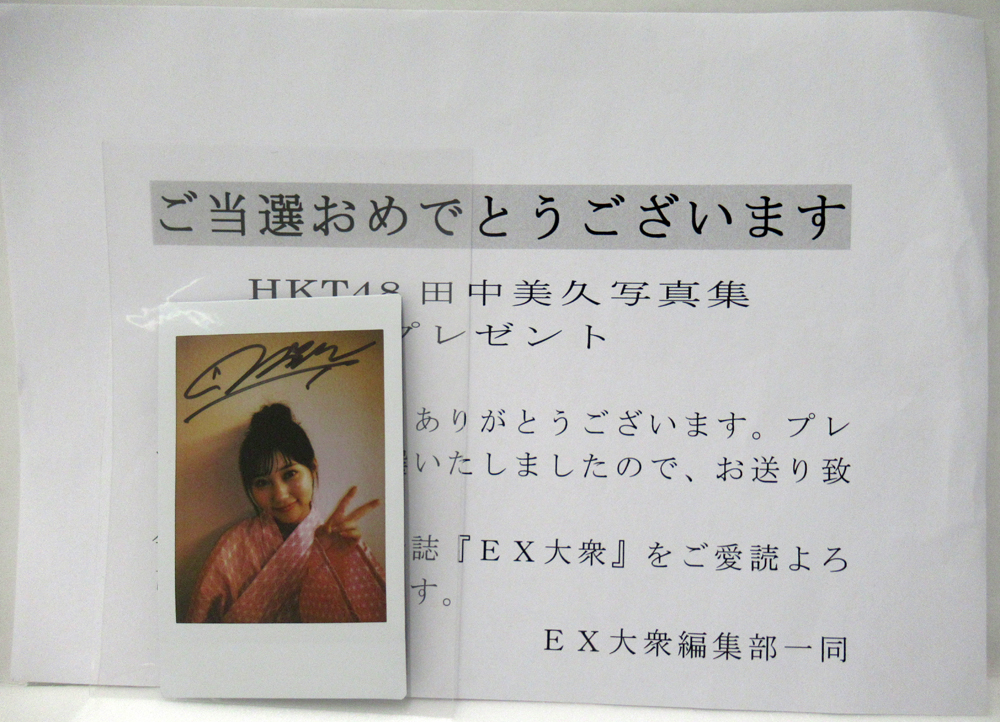 ご当選おめでとうございます
HKT48 田中美久写真集
プレゼント
ありがとうございます。プレ
いたしましたので、お送り致
誌『ＥＸ大衆』をご愛読よろ
す。
ＥＸ大衆編集部一同